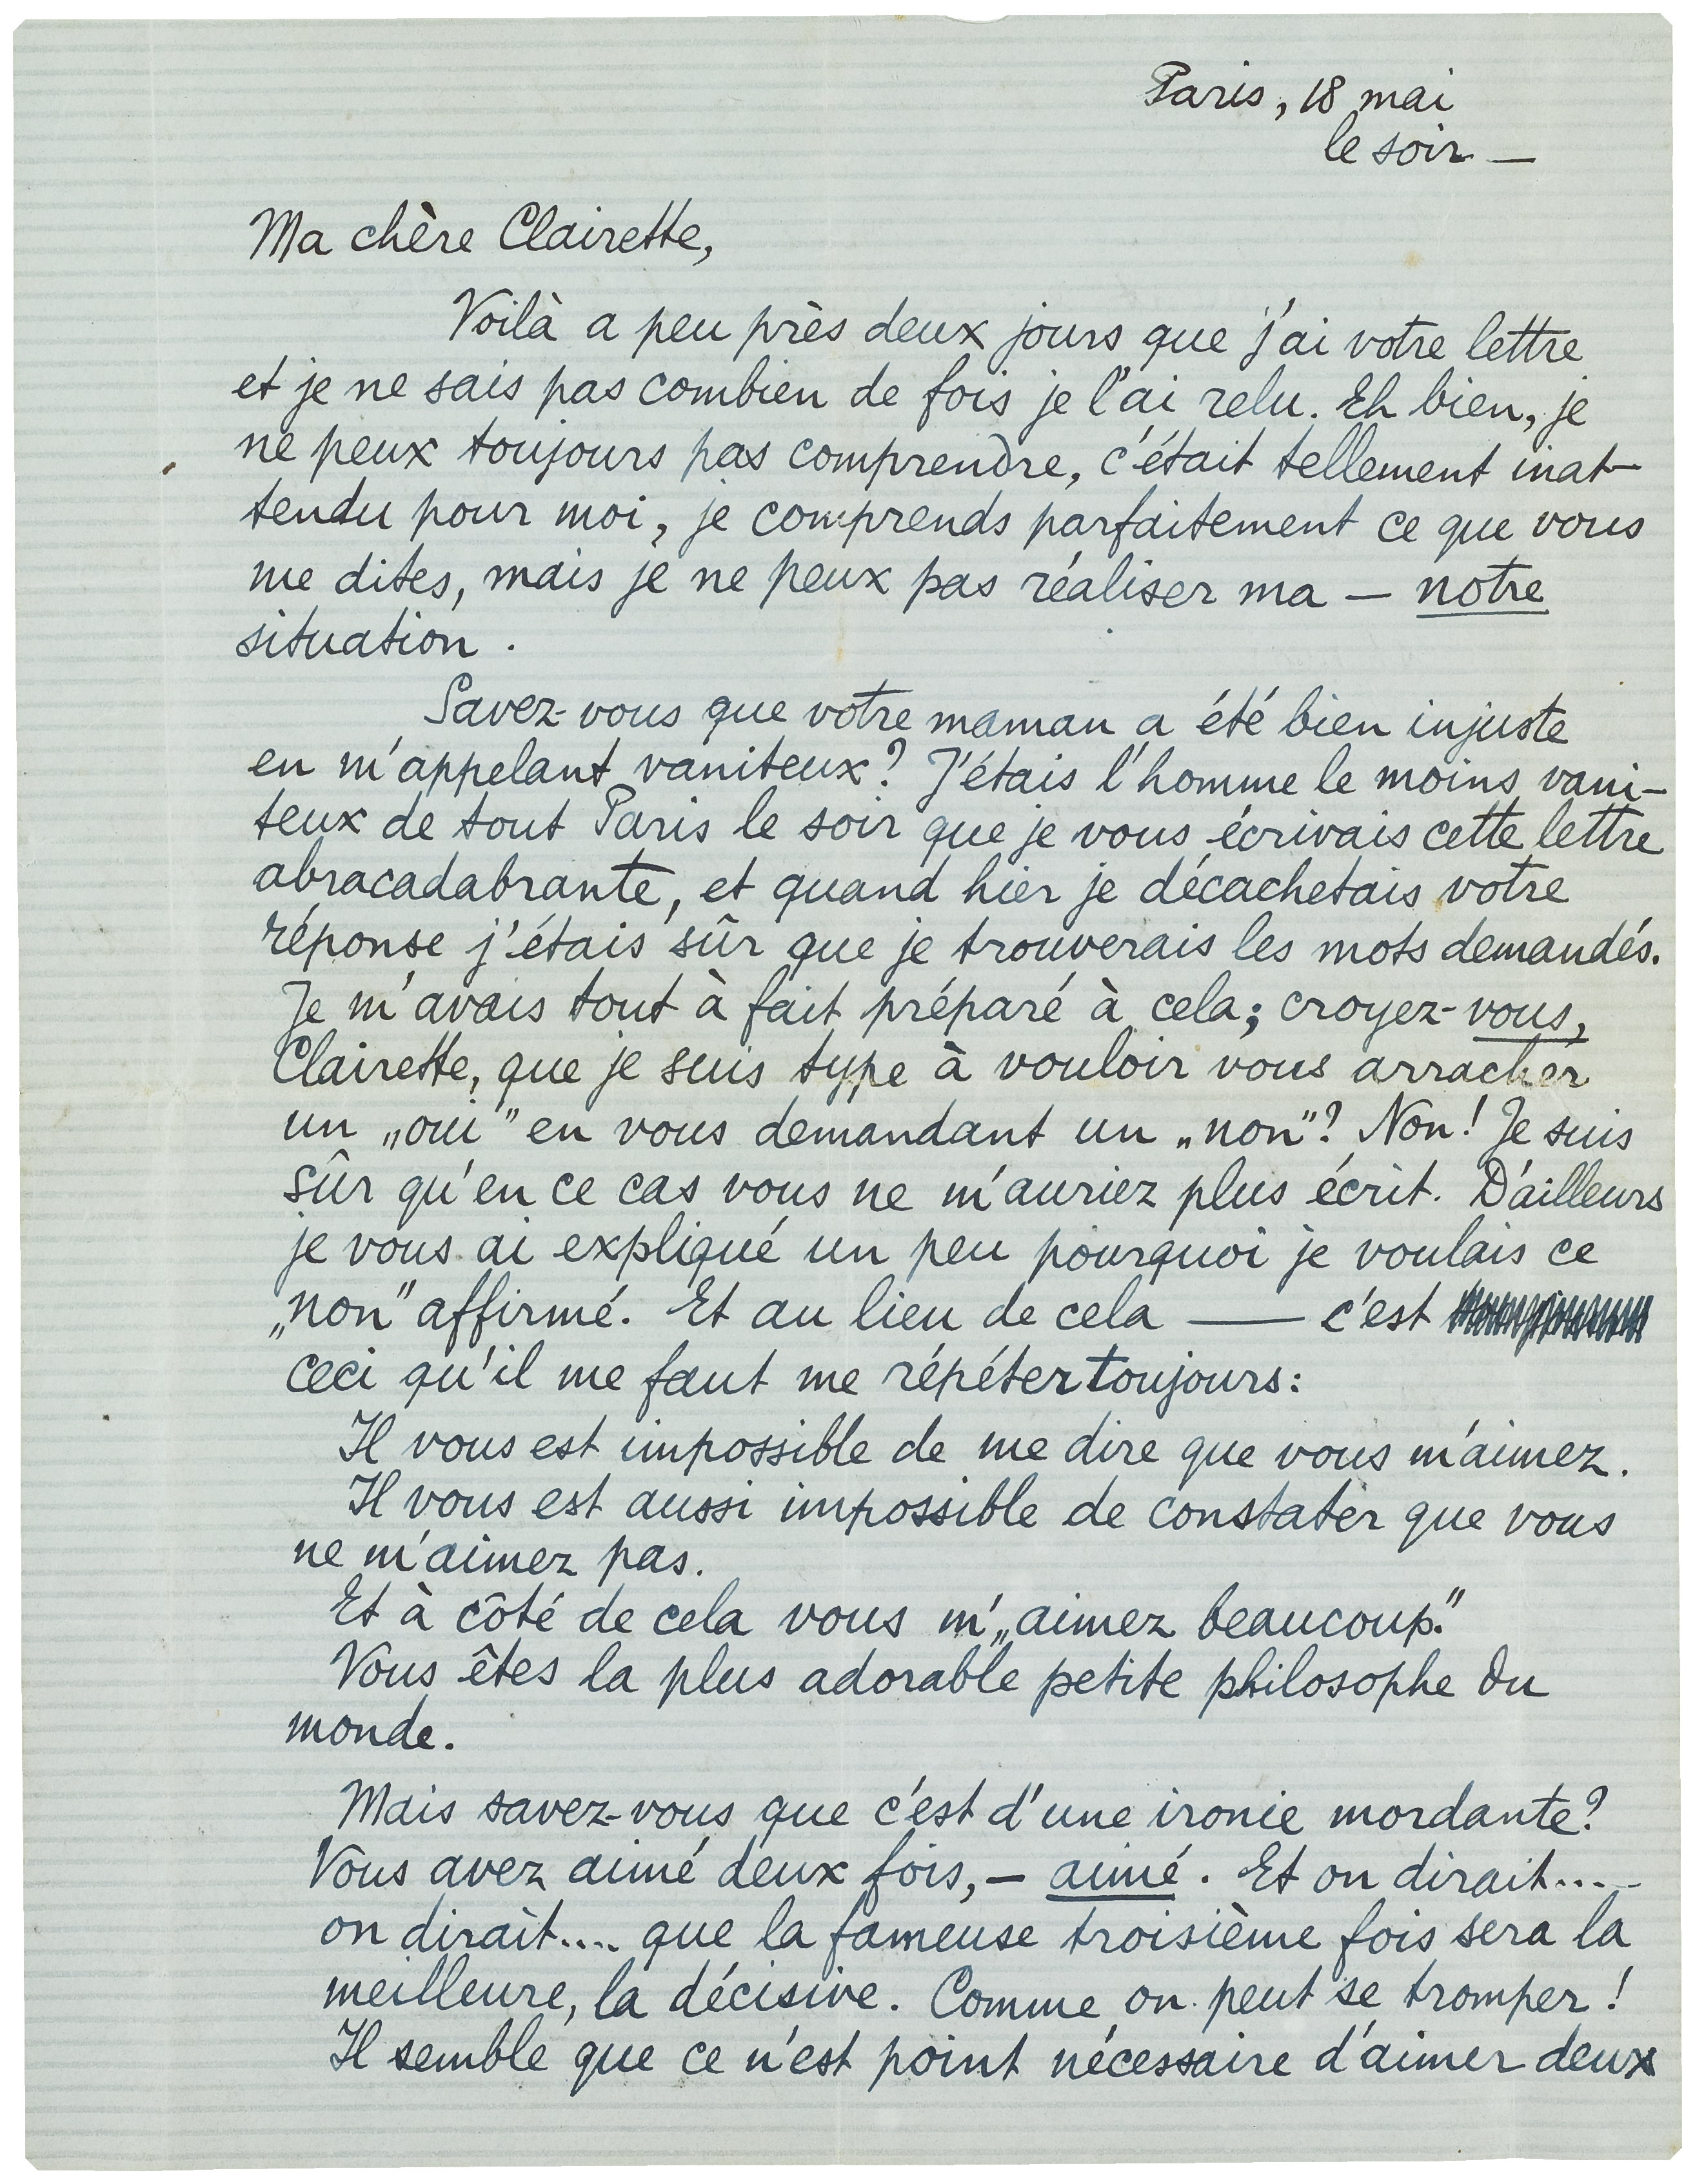 Paris, 18 mai
le soir —
Ma chère Clairette,
Voilà a peu près deux jours que j'ai votre lettre
et je ne sais pas combien de fois je l'ai relu. Eh bien, je
ne peux toujours pas comprendre, c'était tellement inat-
tendu pour moi, je comprends parfaitement ce que vous
me dites, mais je ne peux pas réaliser ma — notre
situation.
Savez-vous que votre maman a été bien injuste
en m'appelant vaniteux? J'étais l'homme le moins vani-
teux de tout Paris le soir que je vous écrivais cette lettre
abracadabrante, et quand hier je décachetais votre
réponse j'étais sûr que je trouverais les mots demandés.
Je m'avais tout à fait préparé à cela; croyez-vous,
Clairette, que je suis type à vouloir vous arracher
un „oui” en vous demandant un „non”? Non! Je suis
sûr qu'en ce cas vous ne m'auriez plus écrit. D'ailleurs
je vous ai expliqué un peu pourquoi je voulais ce
„non” affirmé. Et au lieu de cela — c'est
ceci qu'il me faut me répéter toujours:
Il vous est impossible de me dire que vous m'aimez.
Il vous est aussi impossible de constater que vous
ne m'aimez pas.
Et à côté de cela vous m'„aimez beaucoup.”
Vous êtes la plus adorable petite philosophe du
monde.
Mais savez-vous que c'est d'une ironie mordante?
Vous avez aimé deux fois, — aimé. Et on dirait....
on dirait.... que la fameuse troisième fois sera la
meilleure, la décisive. Comme on peut se tromper!
Il semble que ce n'est point nécessaire d'aimer deux